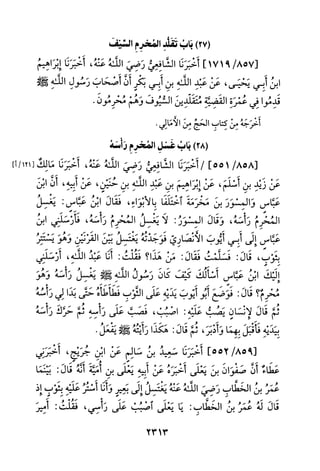 (٢٧) بَابُ تَقَلُّدِ المُحْرِمِ السَّيْفَ
[١٧١٩/٨٥٧] أَخْبَرَنَا الشَّافِعِيُّ رَضِيَ اللَّهُ عَنْهُ، أَخْبَرَنَا إِبْرَاهِيمُ
ابنُ أَبِي يَحْيَى، عَنْ عَبْدِ اللَّهِ بنِ أَبِي بَكْرٍ أَنَّ أَصْحَابَ رَسُولِ اللَّهِ ﷺ
قَدِمُوا فِي عُمْرَةِ القَضِيَّةِ مُتَقَلِّدِينَ السُّيُوفَ وَهُمْ مُحْرِمُونَ.
أَخْرَجَهُ مِنْ كِتَابِ الحَجِّ مِنَ الأَمَالِي.
(٢٨) بَابُ غَسْلِ المُحْرِمِ رَأْسَهُ
[٥٥١/٨٥٨] / أَخْبَرَنَا الشَّافِعِيُّ رَضِيَ اللَّهُ عَنْهُ، أَخْبَرَنَا مَالِكٌ (١٢١/أ)
عَنْ زَيْدِ بنِ أَسْلَمَ، عَنْ إِبْرَاهِيمَ بنِ عَبْدِ اللَّهِ بنِ حُنَيْنٍ، عَنْ أَبِيهِ، أَنَّ ابْنَ
عَبَّاسٍ وَالمِسْوَرَ بنَ مَخْرَمَةَ اخْتَلَفَا بِالأَبْوَاءِ، فَقَالَ ابْنُ عَبَّاسٍ: يَغْسِلُ
المُحْرِمُ رَأْسَهُ، وَقَالَ المِسْوَرُ: لَا يَغْسِلُ المُحْرِمُ رَأْسَهُ، فَأَرْسَلَنِي ابنُ
عَبَّاسٍ إِلَى أَبِي أَيُّوبَ الأَنْصَارِيِّ فَوَجَدْتُهُ يَغْتَسِلُ بَيْنَ القَرْنَيْنِ وَهُوَ يَسْتَتِرُ
بِثَوْبٍ، قَالَ: فَسَلَّمْتُ فَقَالَ: مَنْ هَذَا؟ فَقُلْتُ: أَنَا عَبْدُ اللَّهِ، أَرْسَلَنِي
إِلَيْكَ ابْنُ عَبَّاسٍ أَسْأَلُكَ كَيْفَ كَانَ رَسُولُ اللَّهِ ﷺ يَغْسِلُ رَأْسَهُ وَهُوَ
مُحْرِمٌ؟ قَالَ: فَوَضَعَ أَبُو أَيُّوبَ يَدَيْهِ عَلَى الثَّوْبِ فَطَأْطَأَهُ حَتَّى بَدَا لِي رَأْسُهُ
ثُمَّ قَالَ لإِنْسَانٍ يَصُبُّ عَلَيْهِ: اصْبُبْ، فَصَبَّ عَلَى رَأْسِهِ ثُمَّ حَرَّكَ رَأْسَهُ
بِيَدَيْهِ فَأَقْبَلَ بِهِمَا وَأَدْبَرَ، ثُمَّ قَالَ: هَكَذَا رَأَيْتُهُ ﷺ يَفْعَلُ.
[٥٥٢/٨٥٩] أَخْبَرَنَا سَعِيدُ بنُ سَالِمٍ عَنْ ابْنِ جُرَيْجٍ، أَخْبَرَنِي
عَطَاءٌ أَنَّ صَفْوَانَ بنَ يَعْلَى أَخْبَرَهُ عَنْ أَبِيهِ يَعْلَى بنِ أُمَيَّةَ أَنَّهُ قَالَ: بَيْنَمَا
عُمَرُ بنُ الخَطَّابِ رَضِيَ اللَّهُ عَنْهُ يَغْتَسِلُ إِلَى بَعِيرٍ وَأَنَا أَسْتُرُ عَلَيْهِ بِثَوْبٍ إِذ
قَالَ لَهُ عُمَرُ بنُ الخَطَّابِ: يَا يَعْلَى أَصْبُبْ عَلَى رَأْسِي، فَقُلْتُ: أَمِيرَ
٢٣١٣